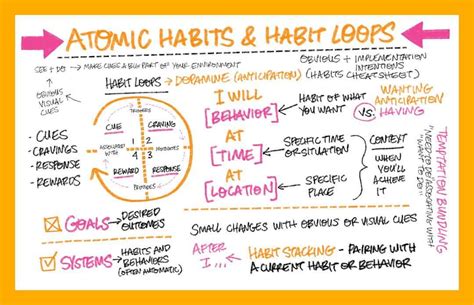 ATOMIC HABITS & HABIT LOOPS
SEE + DO → MAKE CUES A BIG PART OF YOUR ENVIRONMENT
OBVIOUS + IMPLEMENTATION
INTENTIONS
(HABITS CHEATSHEET)
OBVIOUS
VISUAL
CUES
HABIT LOOPS → DOPAMINE (ANTICIPATION)
- CUES
- CRAVINGS
- RESPONSE
- REWARDS
TRIGGERS
CUE
CRAVING
1 2
ASSOCIATED WITH
MOTIVATES
4 3
REWARD
RESPONSE
PROVIDES
I WILL
[BEHAVIOR]
AT
[TIME]
AT
[LOCATION]
HABIT OF WHAT
YOU WANT
WANTING
ANTICIPATION
VS.
HAVING
SPECIFIC TIME
OR SITUATION
SPECIFIC
PLACE
CONTEXT
WHEN
YOU'LL
ACHIEVE
IT
TEMPTATION BUNDLING
"WANT TO DO"
GOALS → DESIRED
OUTCOMES
SYSTEMS → HABITS AND
BEHAVIORS
(OFTEN AUTOMATIC)
SMALL CHANGES WITH OBVIOUS OR VISUAL CUES
AFTER
I ...
HABIT STACKING - PAIRING WITH
A CURRENT HABIT OR BEHAVIOR